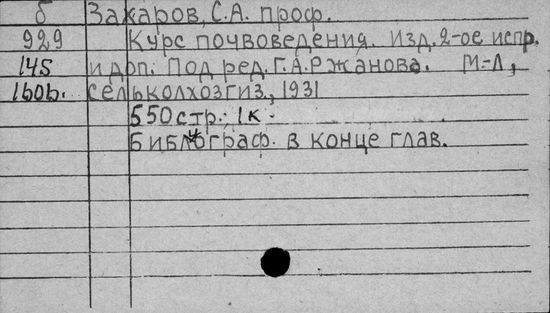 б Захаров, С.А. проф.
929 Курс почвоведения. Изд. 2-ое испр.
145 и доп. Под ред. Г.А. Ржанова. М-Л,
160б. сельколхозгиз., 1931
550 стр.; 1к.
Библиограф. в конце глав.